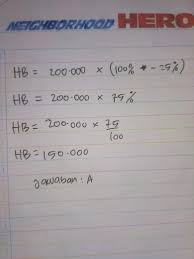 NEIGHBORHOOD HERO
HB = 200.000 × (100% - 25%)
HB = 200.000 × 75%
HB = 200.000 × 75
100
HB = 150.000
Jawaban : A